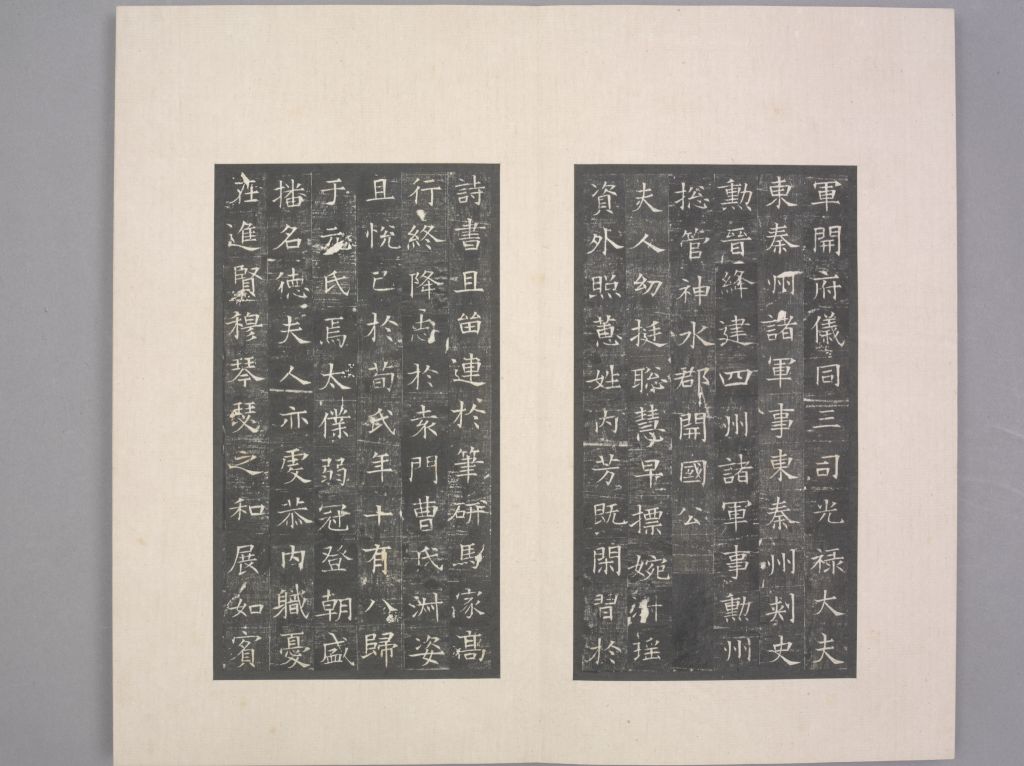 軍開府儀同三司光祿大夫
東秦州諸軍事東秦州刺史
勲晉絳建四州諸軍事勲州
揔管神水郡開國公
夫人幼挺聡慧早摽婉瑶
資外照蕙姓内芳既閑習於
詩書且留連於筆硏馬家髙
行終降志於袁門曹氏淋姿
且悅已於荀氏年十有八歸
于元氏焉太僕弱冠登朝盛
播名德夫人亦虔恭内軄憂
在進賢穆琴瑟之和展如賓